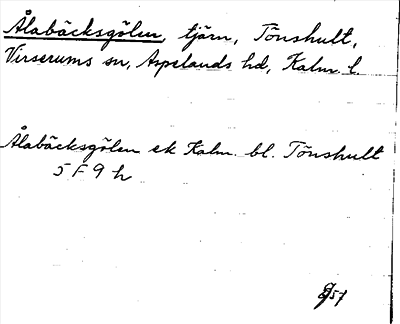 Ålabäcksgölen, tjärn, Tönshult,
Virserums sn, Aspelands hd, Kalm. l.
Ålabäcksgölen ek Kalm. bl. Tönshult
5 F 9 h
57